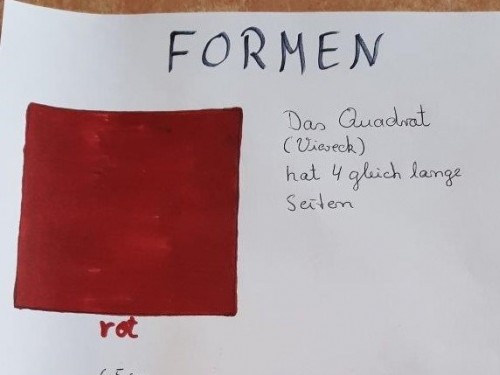 FORMEN
Das Quadrat
(Viereck)
hat 4 gleich lange
Seiten
rot